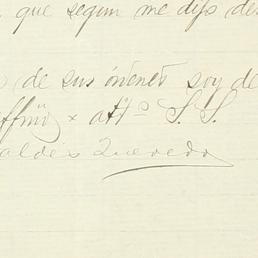 que segun me dijo des
de sus órdenes soy de
affmo x atto S. S.
aldés Quevedo